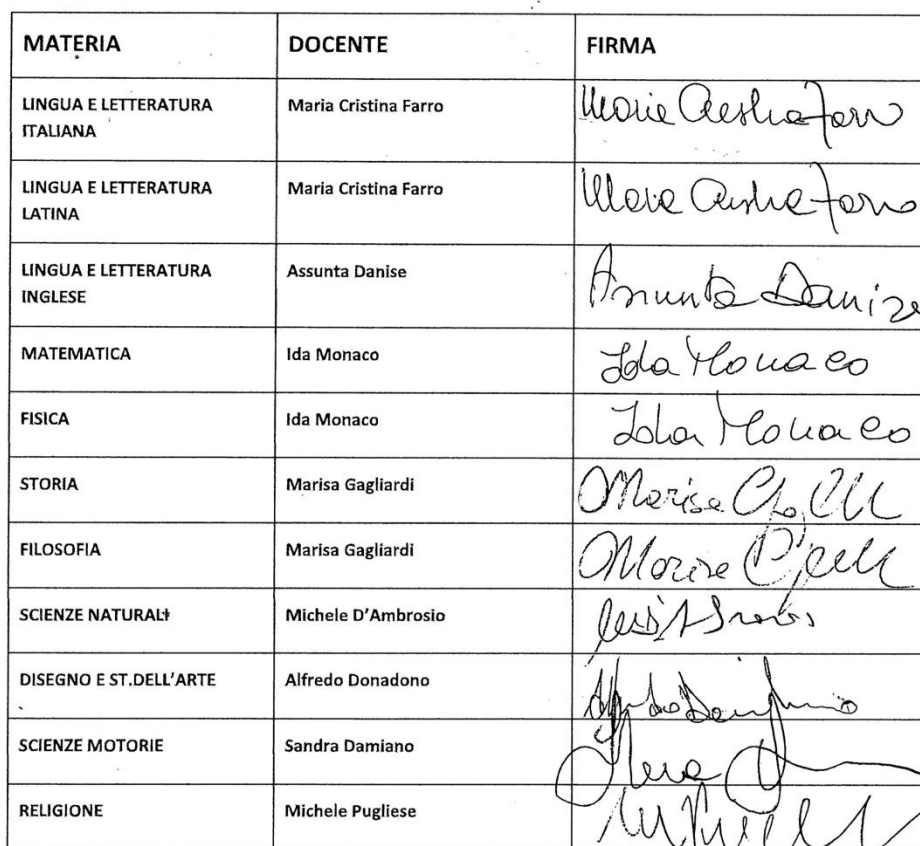 MATERIA DOCENTE FIRMA
LINGUA E LETTERATURA Maria Cristina Farro Maria Cristina Farro
ITALIANA
LINGUA E LETTERATURA Maria Cristina Farro Maria Cristina Farro
LATINA
LINGUA E LETTERATURA Assunta Danise Assunta Danise
INGLESE
MATEMATICA Ida Monaco Ida Monaco
FISICA Ida Monaco Ida Monaco
STORIA Marisa Gagliardi Marisa
FILOSOFIA Marisa Gagliardi Marisa
SCIENZE NATURALI Michele D'Ambrosio
DISEGNO E ST.DELL'ARTE Alfredo Donadono
SCIENZE MOTORIE Sandra Damiano
RELIGIONE Michele Pugliese